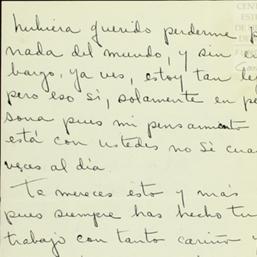 hubiera querido perderme p
nada del mundo, y sin em
bargo, ya ves, estoy tan le
pero eso sí, solamente en pe
sona pues mi pensamiento
está con ustedes no sé cua
veces al día.
Te mereces ésto y más
pues siempre has hecho tu
trabajo con tanto cariño y
CENT
ESTU
DE